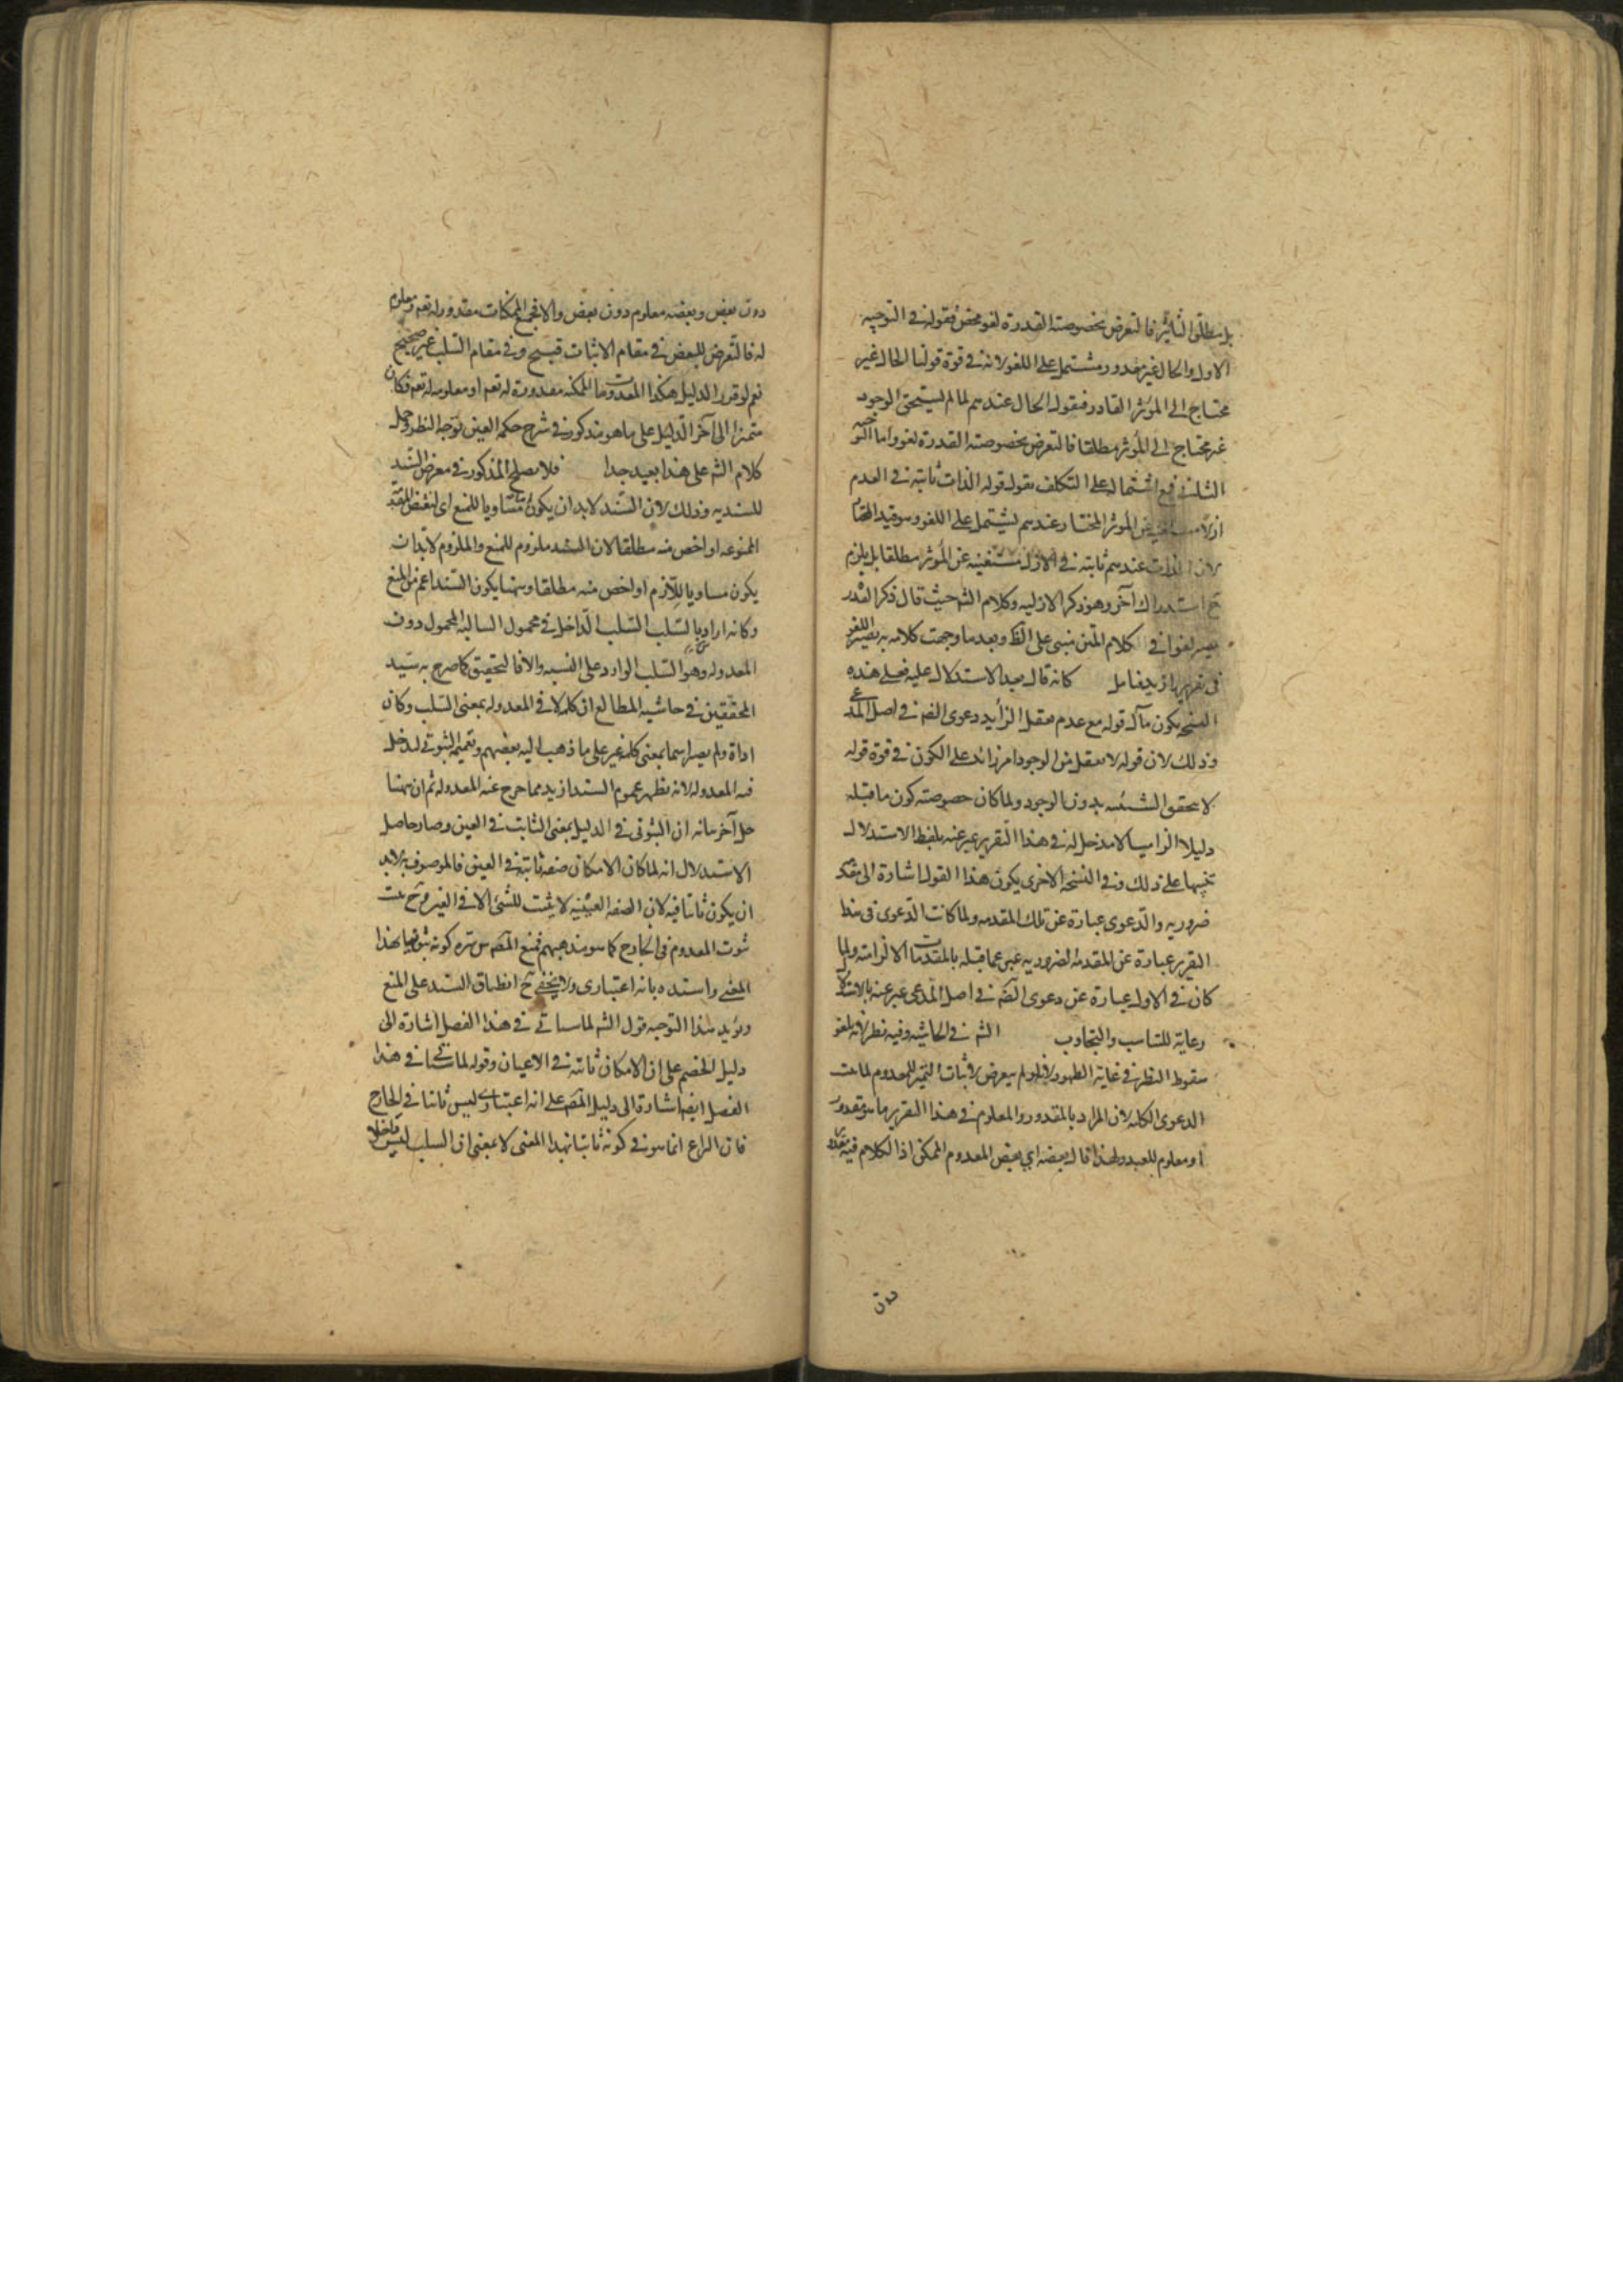 بل مطلق التأثير فالتعرض بخصوصته القدرة لغو محض فقوله في التوجيه
الاول والحال غير مقدور مشتمل على اللغو لانه في قوة قولنا الحال غير
محتاج الى المؤثر القادر فبقوله الحال عندهم لما لم يستحق الوجود
غير محتاج الى المؤثر مطلقا فالتعرض بخصوصته القدرة لغو واما التوجيه
الثاني فمع اشتماله على التكلف بقوله قوله الذات ثابتة في العدم
المؤثر المختار عندهم يشتمل على اللغو وهو قيد المختار
لان الذات عندهم ثابتة في الازل مستغنية عن المؤثر مطلقا بل يلزم
ح استدراك آخر وهو ذكر الازلية وكلام الشه حيث قال ذكر القدر
يصير لغوا في كلام المتن مبني على الظ وبعد ما وجهت كلامه به يصير اللغو
في تقريره ازيد فتامل كانه قال بعد الاستدلال عليه فعلى هذه
النسخة يكون مآل قوله مع عدم تعقل الزايد دعوى الضه في اصل المدعى
وذلك لان قوله لا تعقل من الوجود امر زائد على الكون في قوة قوله
لا تحقق الشيئية بدون الوجود ولما كان خصوصته كون ما قبله
دليلا الزاميا لا مدخل له في هذا التقرير عبر عنه بلفظ الاستدلال
تنبيها على ذلك وفي النسخة الاخرى يكون هذا القول اشارة الى مقد
ضرورية والدعوى عبارة عن تلك المقدمة ولما كانت الدعوى في هذا
التقرير عبارة عن المقدمة الضرورية عبر عما قبله بالمقدمات الالزامية ولما
كان في الاول عبارة عن دعوى الضه في اصل المدعى عبر عنه بالاستدلا
رعاية للتناسب والتجاوب الشه في الحاشية وفيه نظر لانه لغو
سقوط النظر في غاية الظهور لانه لو لم يتعرض لاثبات التميز للمعدوم لما تمت
الدعوى الكلية لان المراد بالمقدور والمعلوم في هذا التقرير ما هو مقدور
او معلوم للعبد ولهذا قال بعضه اي بعض المعدوم الممكن اذ الكلام فيه مقدور
دون
دون بعض وبعضه معلوم دون بعض والا فجميع الممكنات مقدور له تعه ومعلوم
له فالتعرض للبعض في مقام الاثبات قبيح وفي مقام السلب غير صحيح
نعم لو قرر الدليل هكذا المعدومات الممكنة مقدورة له تعه او معلومة له تعه فكان
متميزا الى آخر الدليل على ما هو مذكور في شرح حكمة العين توجه النظر وحمل
كلام الشه على هذا بعيد جدا فلا يصلح المذكور في معرض السند
للسندية وذلك لان السند لا بد ان يكون متساويا للمنع اي لنقيض المقد
الممنوعة او اخص منه مطلقا لان السند ملزوم للمنع والملزوم لا بد ان
يكون مساويا للازم او اخص منه مطلقا وههنا يكون السند اعم من المنع
وكانه اراد بالسلب السلب الداخل في محمول السالبة المحمول دون
المعدولة وهو السلب الوارد على النسبة والا فالتحقيق كما صرح به سيد
المحققين في حاشية المطالع ان كلمة لا في المعدولة بمعنى السلب وكان
اداة ولم يصر اسما بمعنى كلمة غير على ما ذهب اليه بعضهم وتتميم الثبوتي ليدخل
فيه المعدولة لانه تظهر عموم السند ازيد مما خرج عنه المعدولة ثم ان ههنا
حل آخر مانه ان الثبوتي في الدليل بمعنى الثابت في العين وصار حاصل
الاستدلال انه لما كان الامكان صفة ثابتة في العين فالموصوف به لا بد
ان يكون ثابتا فيه لان الصفة العينية لا يثبت للشئ الا في العين وح يثبت
ثبوت المعدوم في الخارج كما هو مذهبهم فمنع المصه كونه ثبوتيا بهذا
المعنى واسنده بانه اعتباري ولا يخفى ح انطباق السند على المنع
ويؤيد هذا التوجيه قول الشه لما سياتي في هذا الفصل اشارة الى
دليل الخصم على ان الامكان ثابتة في الاعيان وقوله لما سيأتي في هذا
الفصل ايضا اشارة الى دليل المصه على انه اعتباري ليس ثابتا في الخارج
فان النزاع انما هو في كونه ثابتا بهذا المعنى لا بمعنى ان السلب ليس داخلا